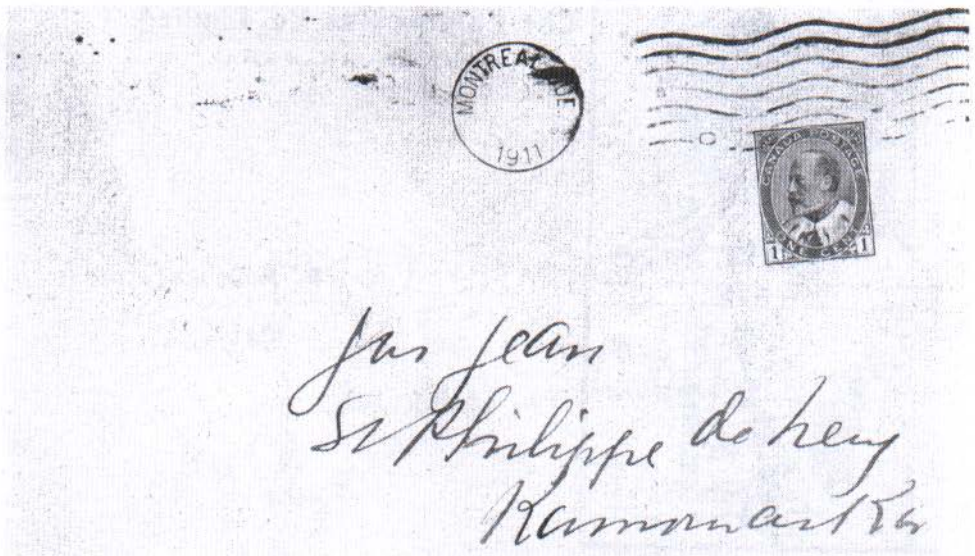 MONTREAL QUE
1911
CANADA POSTAGE
1 ONE CENT 1
Jas Jean
St Philippe de Nery
Kamouraska